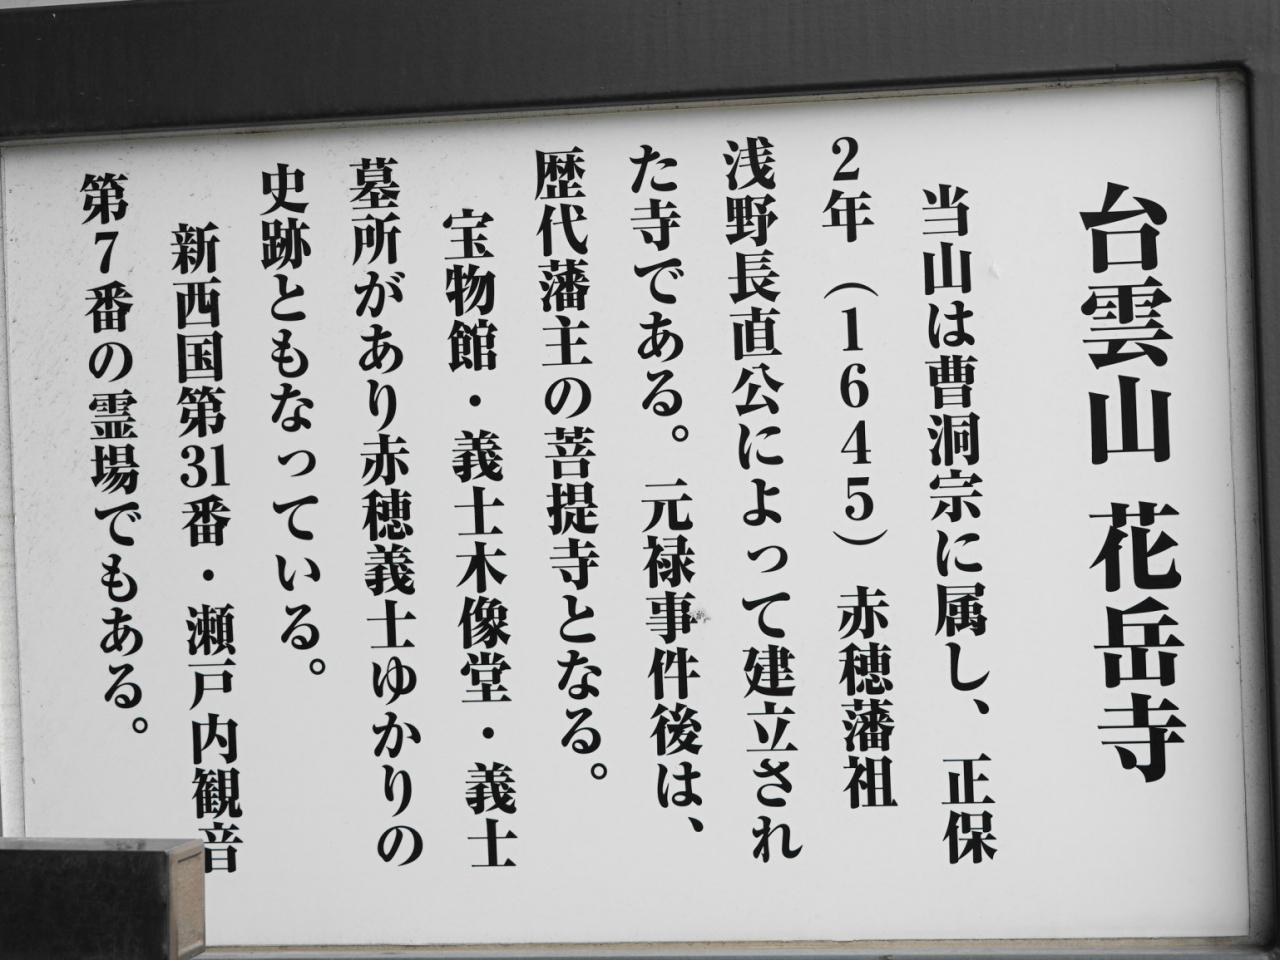 台雲山 花岳寺
当山は曹洞宗に属し、正保
2年（1645）赤穂藩祖
浅野長直公によって建立され
た寺である。元禄事件後は、
歴代藩主の菩提寺となる。
宝物館・義士木像堂・義士
墓所があり赤穂義士ゆかりの
史跡ともなっている。
新西国第31番・瀬戸内観音
第7番の霊場でもある。